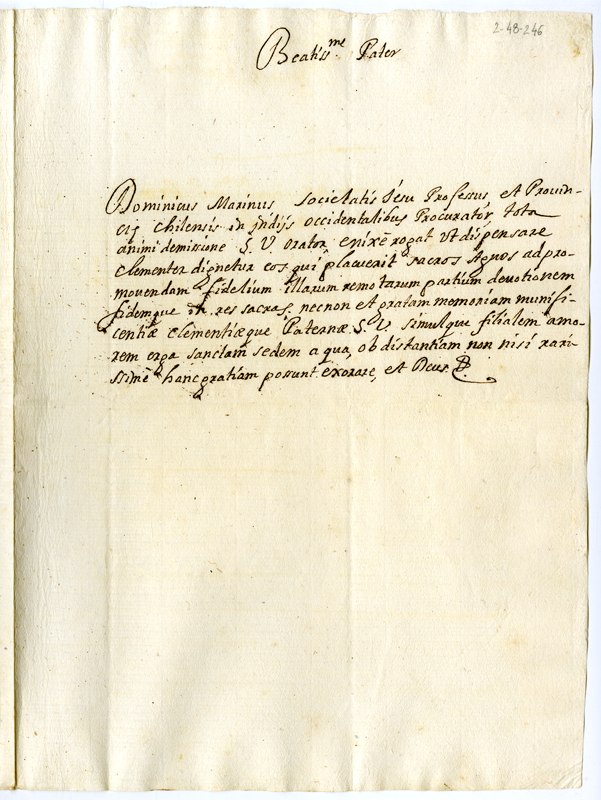 2-48-246
Beatiss.me Pater
Dominicus Marinus Societatis Jesu Professus, et Provin-
ciæ Chilensis in Indijs Occidentalibus Procurator, tota
animi demissione S. V. orator enixè rogat Vt dispensare
clementer dignetur eos qui placuerit sacros Agnos ad pro-
mouendam fidelium illarum remotarum partium deuotionem
fidemque in res sacras, necnon et gratam memoriam munifi-
centiæ clementiæque Paternæ S. V. simulque filialem amo-
rem erga sanctam sedem a qua, ob distantiam non nisi rari-
ssimè hanc gratiam possunt exorare, et Deus